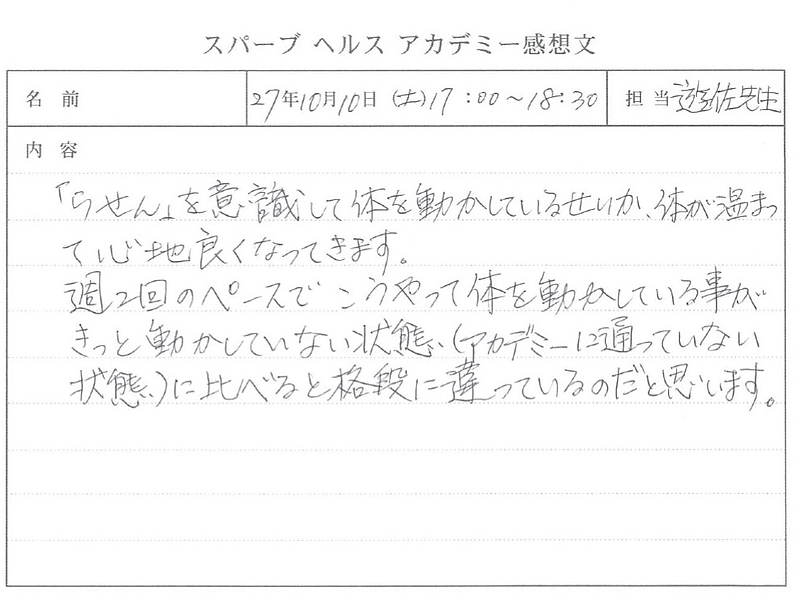 スパーブ ヘルス アカデミー感想文
名 前 27年10月10日 (土) 17:00〜18:30 担 当 遊佐先生
内 容
「らせん」を意識して体を動かしているせいか、体が温まっ
て心地良くなってきます。
週2回のペースでこうやって体を動かしている事が
きっと動かしていない状態(アカデミーに通っていない
状態)に比べると格段に違っているのだと思います。